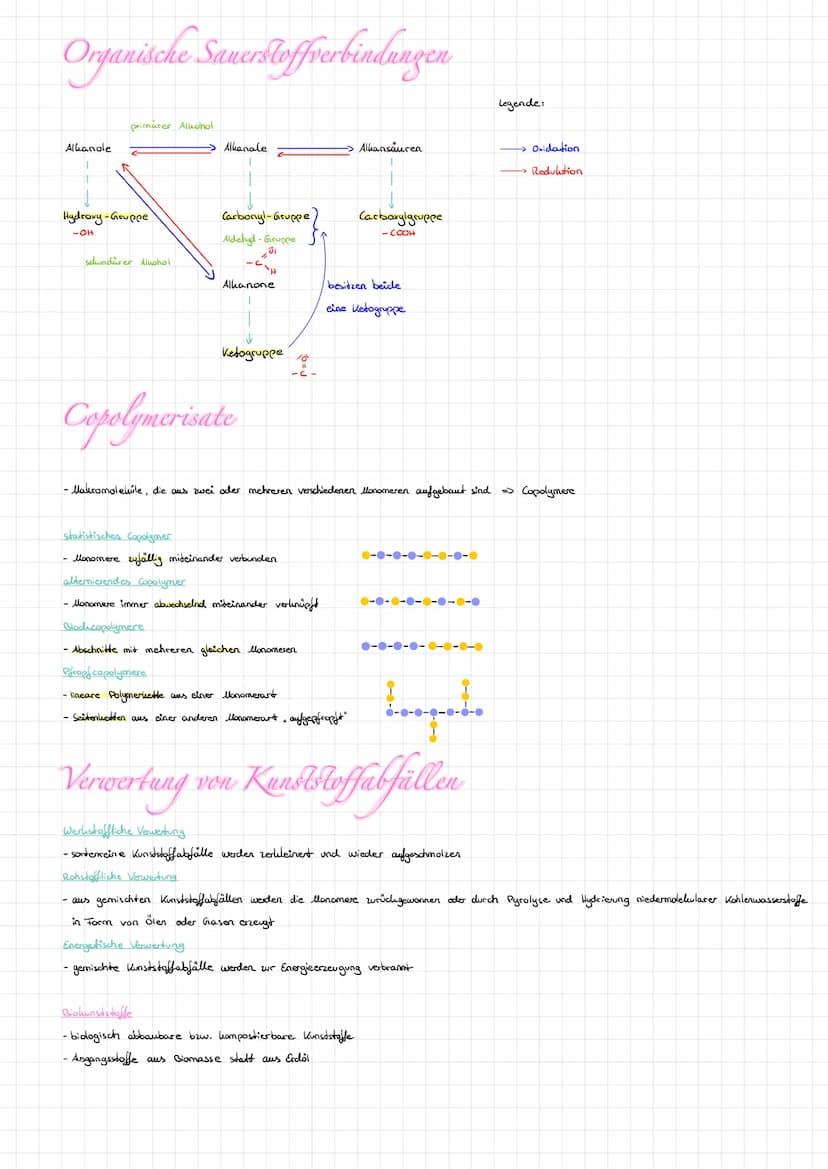 Organische Sauerstoffverbindungen
Legende:
primärer Alkohol
Alkanole Alkanale Alkansäuren
Oxidation
Reduktion
Hydroxy-Gruppe Carbonyl-Gruppe Carboxylgruppe
-OH Aldehyd-Gruppe -COOH
sekundärer Alkohol
-C O H
Alkanone
besitzen beide
eine Ketogruppe
Ketogruppe
O
-C-
Copolymerisate
- Makromoleküle, die aus zwei oder mehreren verschiedenen Monomeren aufgebaut sind => Copolymere
Statistisches Copolymer
- Monomere zufällig miteinander verbunden
alternierendes Copolymer
- Monomere immer abwechselnd miteinander verknüpft
Blockcopolymere
- Abschnitte mit mehreren gleichen Monomeren
Pfropfcopolymere
- lineare Polymerkette aus einer Monomerart
- Seitenketten aus einer anderen Monomerart „aufgepfropft"
Verwertung von Kunststoffabfällen
Werkstoffliche Verwertung
- sortenreine Kunststoffabfälle werden zerkleinert und wieder aufgeschmolzen
Rohstoffliche Verwertung
- aus gemischten Kunststoffabfällen werden die Monomere zurückgewonnen oder durch Pyrolyse und Hydrierung niedermolekularer Kohlenwasserstoffe
in Form von Ölen oder Gasen erzeugt
Energetische Verwertung
- gemischte Kunststoffabfälle werden zur Energieerzeugung verbrannt
Biokunststoffe
- biologisch abbaubare bzw. kompostierbare Kunststoffe
- Ausgangsstoffe aus Biomasse statt aus Erdöl